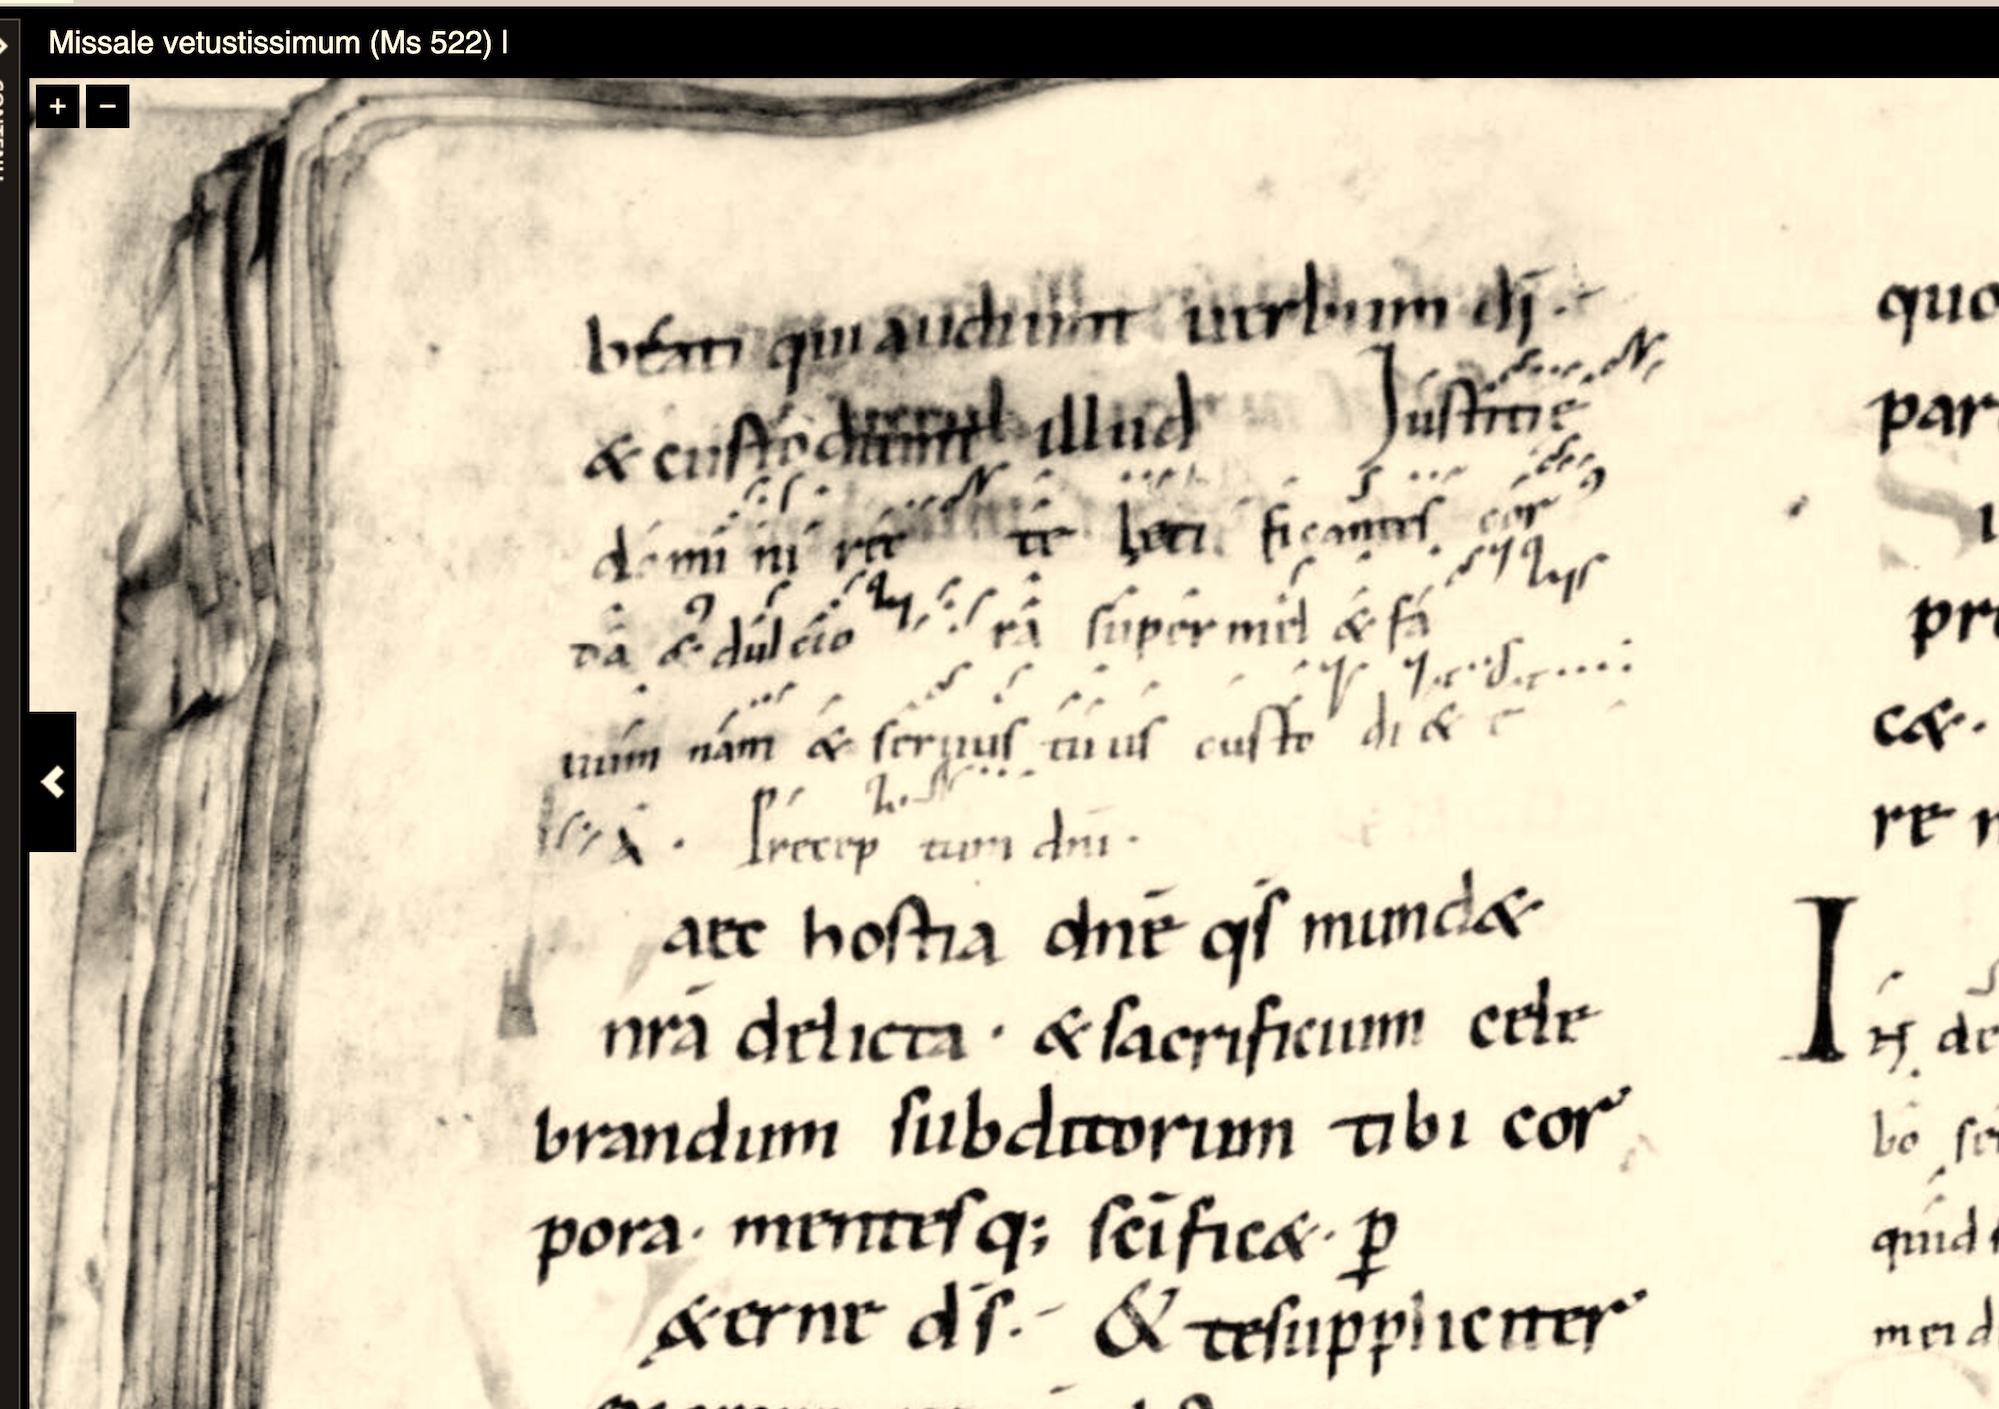 Missale vetustissimum (Ms 522) I
+ −
beati qui audiunt uerbum dī.
& custodiunt illud Justitie
domi ni rec te leti ficantes cor
da & dulcio ra super mel & fa
uum nam & seruus tuus custo di & e
a. Precep tum dnī.
aec hostia dnē qs mund&
nrā delicta · & sacrificium cele
brandum subditorum tibi cor
pora · mentesq; scīfic& · p
&erne ds. & te suppliciter
quo
par
pre
c&.
re n
I
bo
quid
mei d